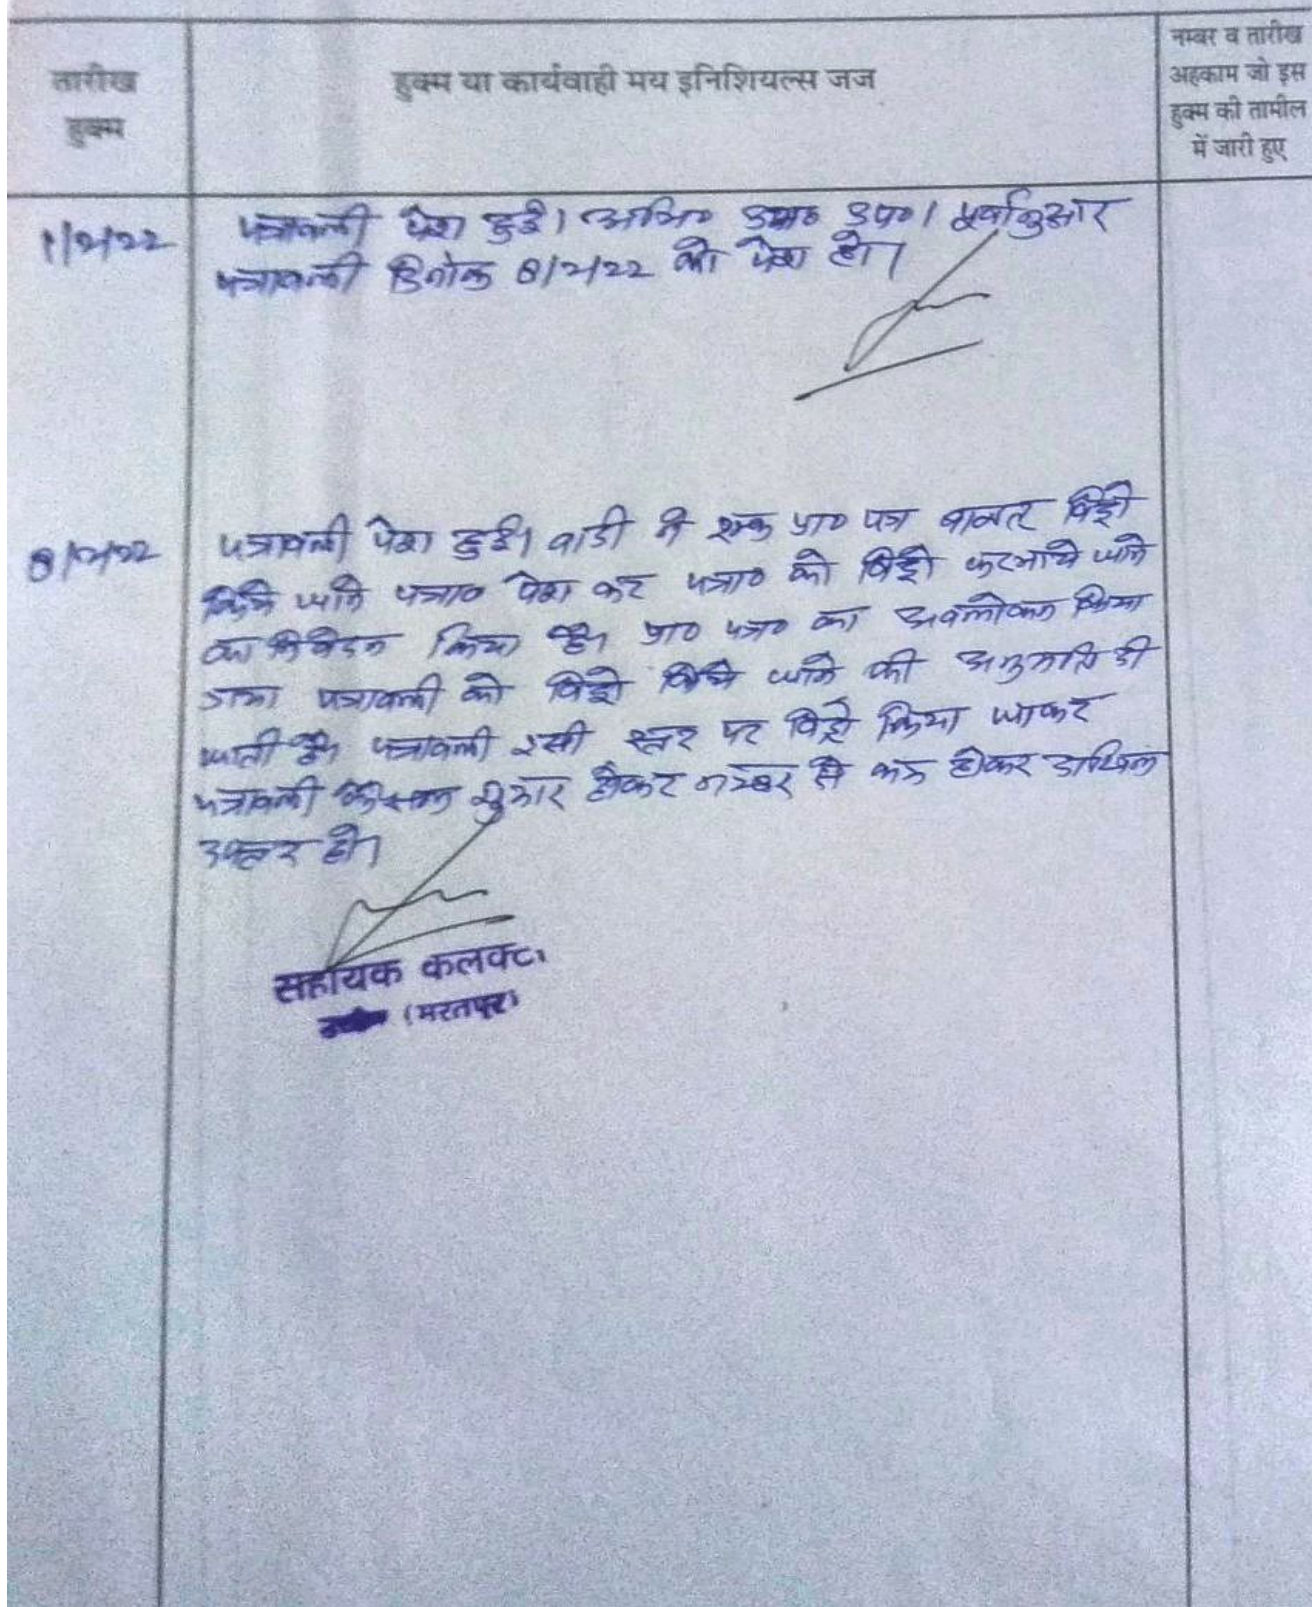 तारीख
हुक्म
हुक्म या कार्यवाही मय इनिशियल्स जज
नम्बर व तारीख
अहकाम जो इस
हुक्म की तामील
में जारी हुए
1/2/22
पत्रावली पेश हुई। अभि० उप०। पूर्वानुसार
पत्रावली दिनांक 8/2/22 को पेश हो।
8/2/22
पत्रावली पेश हुई। वादी ने एक प्रा० पत्र बाबत विड्रो
किये जाने पत्राo पेश कर पत्राo को विड्रो फरमाये जाने
का निवेदन किया है। प्रा० पत्र का अवलोकन किया
गया पत्रावली को विड्रो किये जाने की अनुमति दी
जाती है। पत्रावली इसी स्तर पर विड्रो किया जाकर
पत्रावली फैसल शुमार होकर नम्बर से कम होकर दाखिल
दफ्तर हो।
सहायक कलक्ट
(भरतपुर)